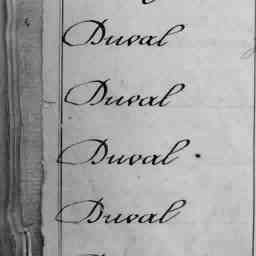 Duval
Duval
Duval
Duval